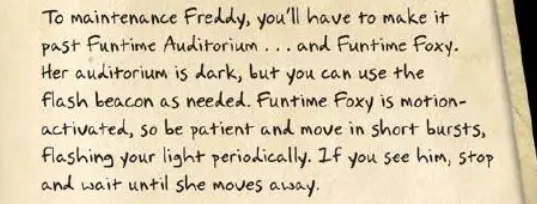 To maintenance Freddy, you'll have to make it
past Funtime Auditorium . . . and Funtime Foxy.
Her auditorium is dark, but you can use the
flash beacon as needed. Funtime Foxy is motion-
activated, so be patient and move in short bursts,
flashing your light periodically. If you see him, stop
and wait until she moves away.